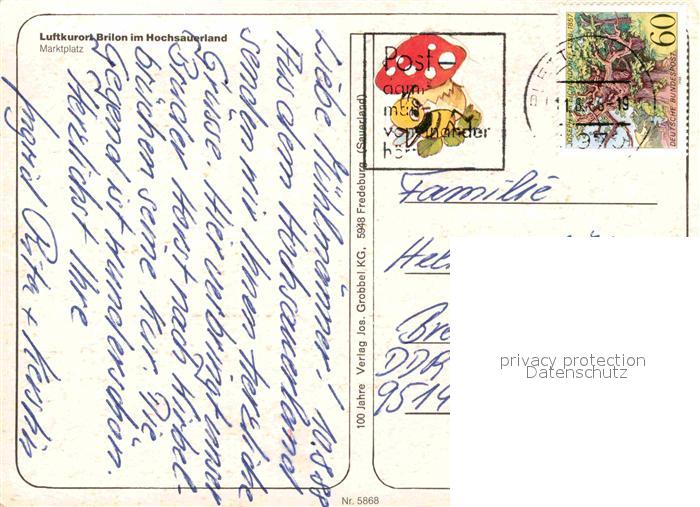 Luftkurort Brilon im Hochsauerland
Marktplatz
Liebe Mühlmänner! 10.8.88
Aus dem Hochsauerland
senden wir Ihnen herzliche
Grüsse. Hier verbringt unser
Bruder Horst nach Hirbel-
brüchen seine Kur. Die
Gegend ist wunderschön.
Herzlichst Ihre
Ingrid Rita + Kerstin
100 Jahre Verlag Jos. Grobbel KG, 5948 Fredeburg (Sauerland)
Nr. 5868
Post
damit
man
voneinander
hört
11.8.88-19
60
DEUTSCHE BUNDESPOST
Familie
Hel
Bre
DDR
9514
privacy protection
Datenschutz